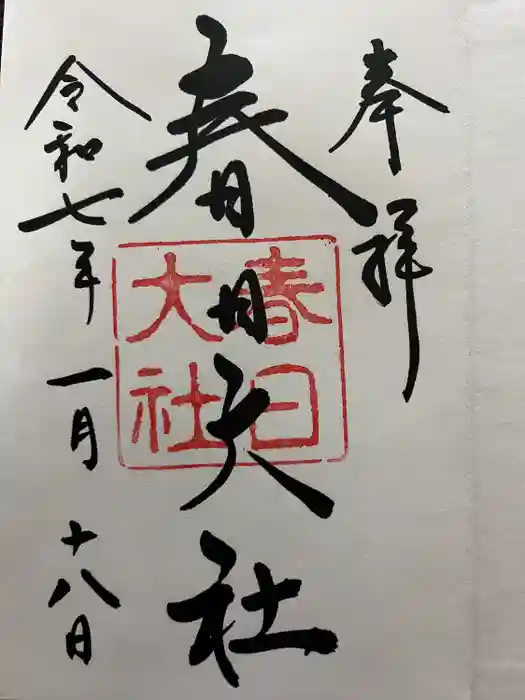 奉拝
春日大社
春日
大社
令和七年一月十八日